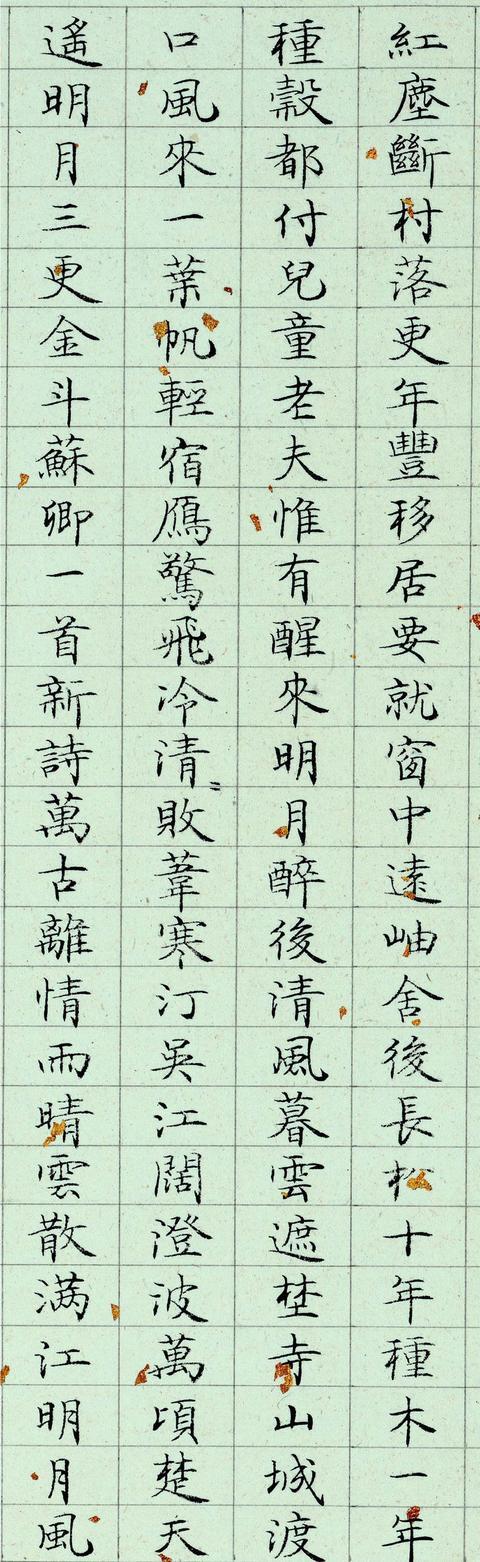 紅塵斷村落更年豐移居要就窗中遠岫舍後長松十年種木一年
種穀都付兒童老夫惟有醒來明月醉後清風暮雲遮埜寺山城渡
口風來一葉帆輕宿鴈驚飛冷清〻敗葦寒汀吳江闊澄波萬頃楚天
遙明月三更金斗蘇卿一首新詩萬古離情雨晴雲散满江明月風